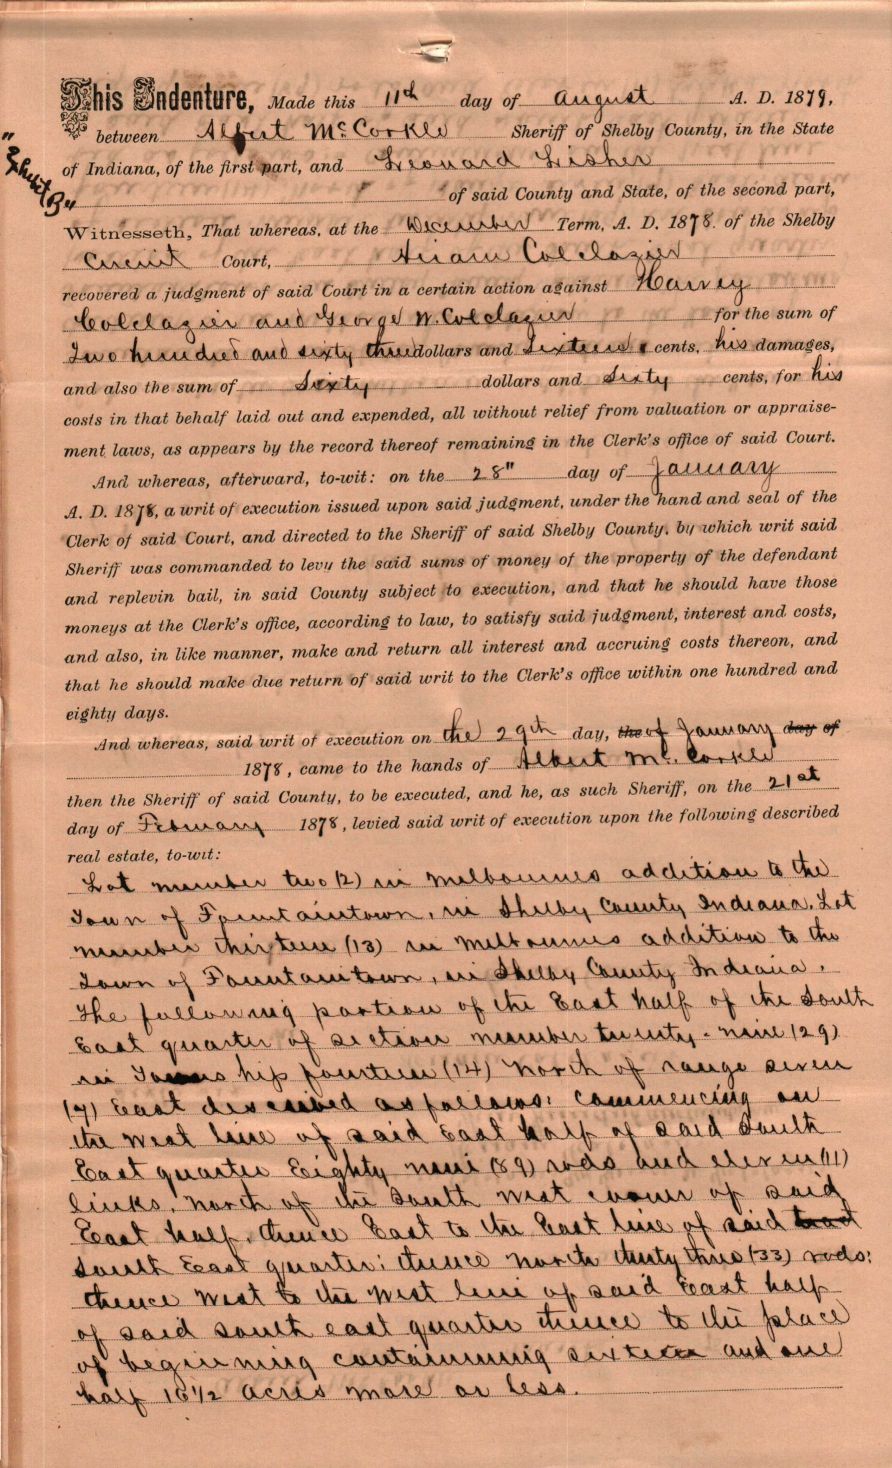 This Indenture, Made this 11th day of August A. D. 1879,
between Albert McCorkle Sheriff of Shelby County, in the State
"Exhibit B"
of Indiana, of the first part, and Leonard Fisher
of said County and State, of the second part,
Witnesseth, That whereas, at the December Term, A. D. 1878. of the Shelby
Circuit Court, Hiram Colclazier
recovered a judgment of said Court in a certain action against Harvey
Colclazier and George W. Colclazier for the sum of
Two hundred and sixty three dollars and Sixteen cents, his damages,
and also the sum of Sixty dollars and Sixty cents, for his
costs in that behalf laid out and expended, all without relief from valuation or appraise-
ment laws, as appears by the record thereof remaining in the Clerk's office of said Court.
And whereas, afterward, to-wit: on the 28" day of January
A. D. 1878, a writ of execution issued upon said judgment, under the hand and seal of the
Clerk of said Court, and directed to the Sheriff of said Shelby County, by which writ said
Sheriff was commanded to levy the said sums of money of the property of the defendant
and replevin bail, in said County subject to execution, and that he should have those
moneys at the Clerk's office, according to law, to satisfy said judgment, interest and costs,
and also, in like manner, make and return all interest and accruing costs thereon, and
that he should make due return of said writ to the Clerk's office within one hundred and
eighty days.
And whereas, said writ of execution on the 29th day, the of January day of
1878, came to the hands of Albert McCorkle
then the Sheriff of said County, to be executed, and he, as such Sheriff, on the 21st
day of February 1878, levied said writ of execution upon the following described
real estate, to-wit:
Lot number two (2) in Melbournes addition to the
Town of Fountaintown, in Shelby County Indiana. Lot
number thirteen (13) in Melbournes addition to the
Town of Fountaintown, in Shelby County Indiana.
The following portion of the East half of the South
East quarter of section number twenty-nine (29)
in Township fourteen (14) North of range seven
(7) East described as follows: commencing on
the West line of said East half of said South
East quarter Eighty nine (89) rods and eleven (11)
links, North of the South West corner of said
East half, thence East to the East line of said tract
South East quarter; thence North thirty three (33) rods;
thence West to the West line of said East half
of said south east quarter thence to the place
of beginning containing sixteen and one
half 16 1/2 acres more or less.